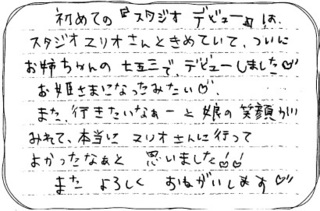 初めての『スタジオ デビュー』は、
スタジオマリオさんときめていて、ついに
お姉ちゃんの七五三で、デビューしました♡
お姫さまになったみたい♡.
また、行きたいなぁーと娘の笑顔が
みれて、本当に マリオさんに行って
よかったなぁと 思いました♡♡
また よろしく おねがいします♡